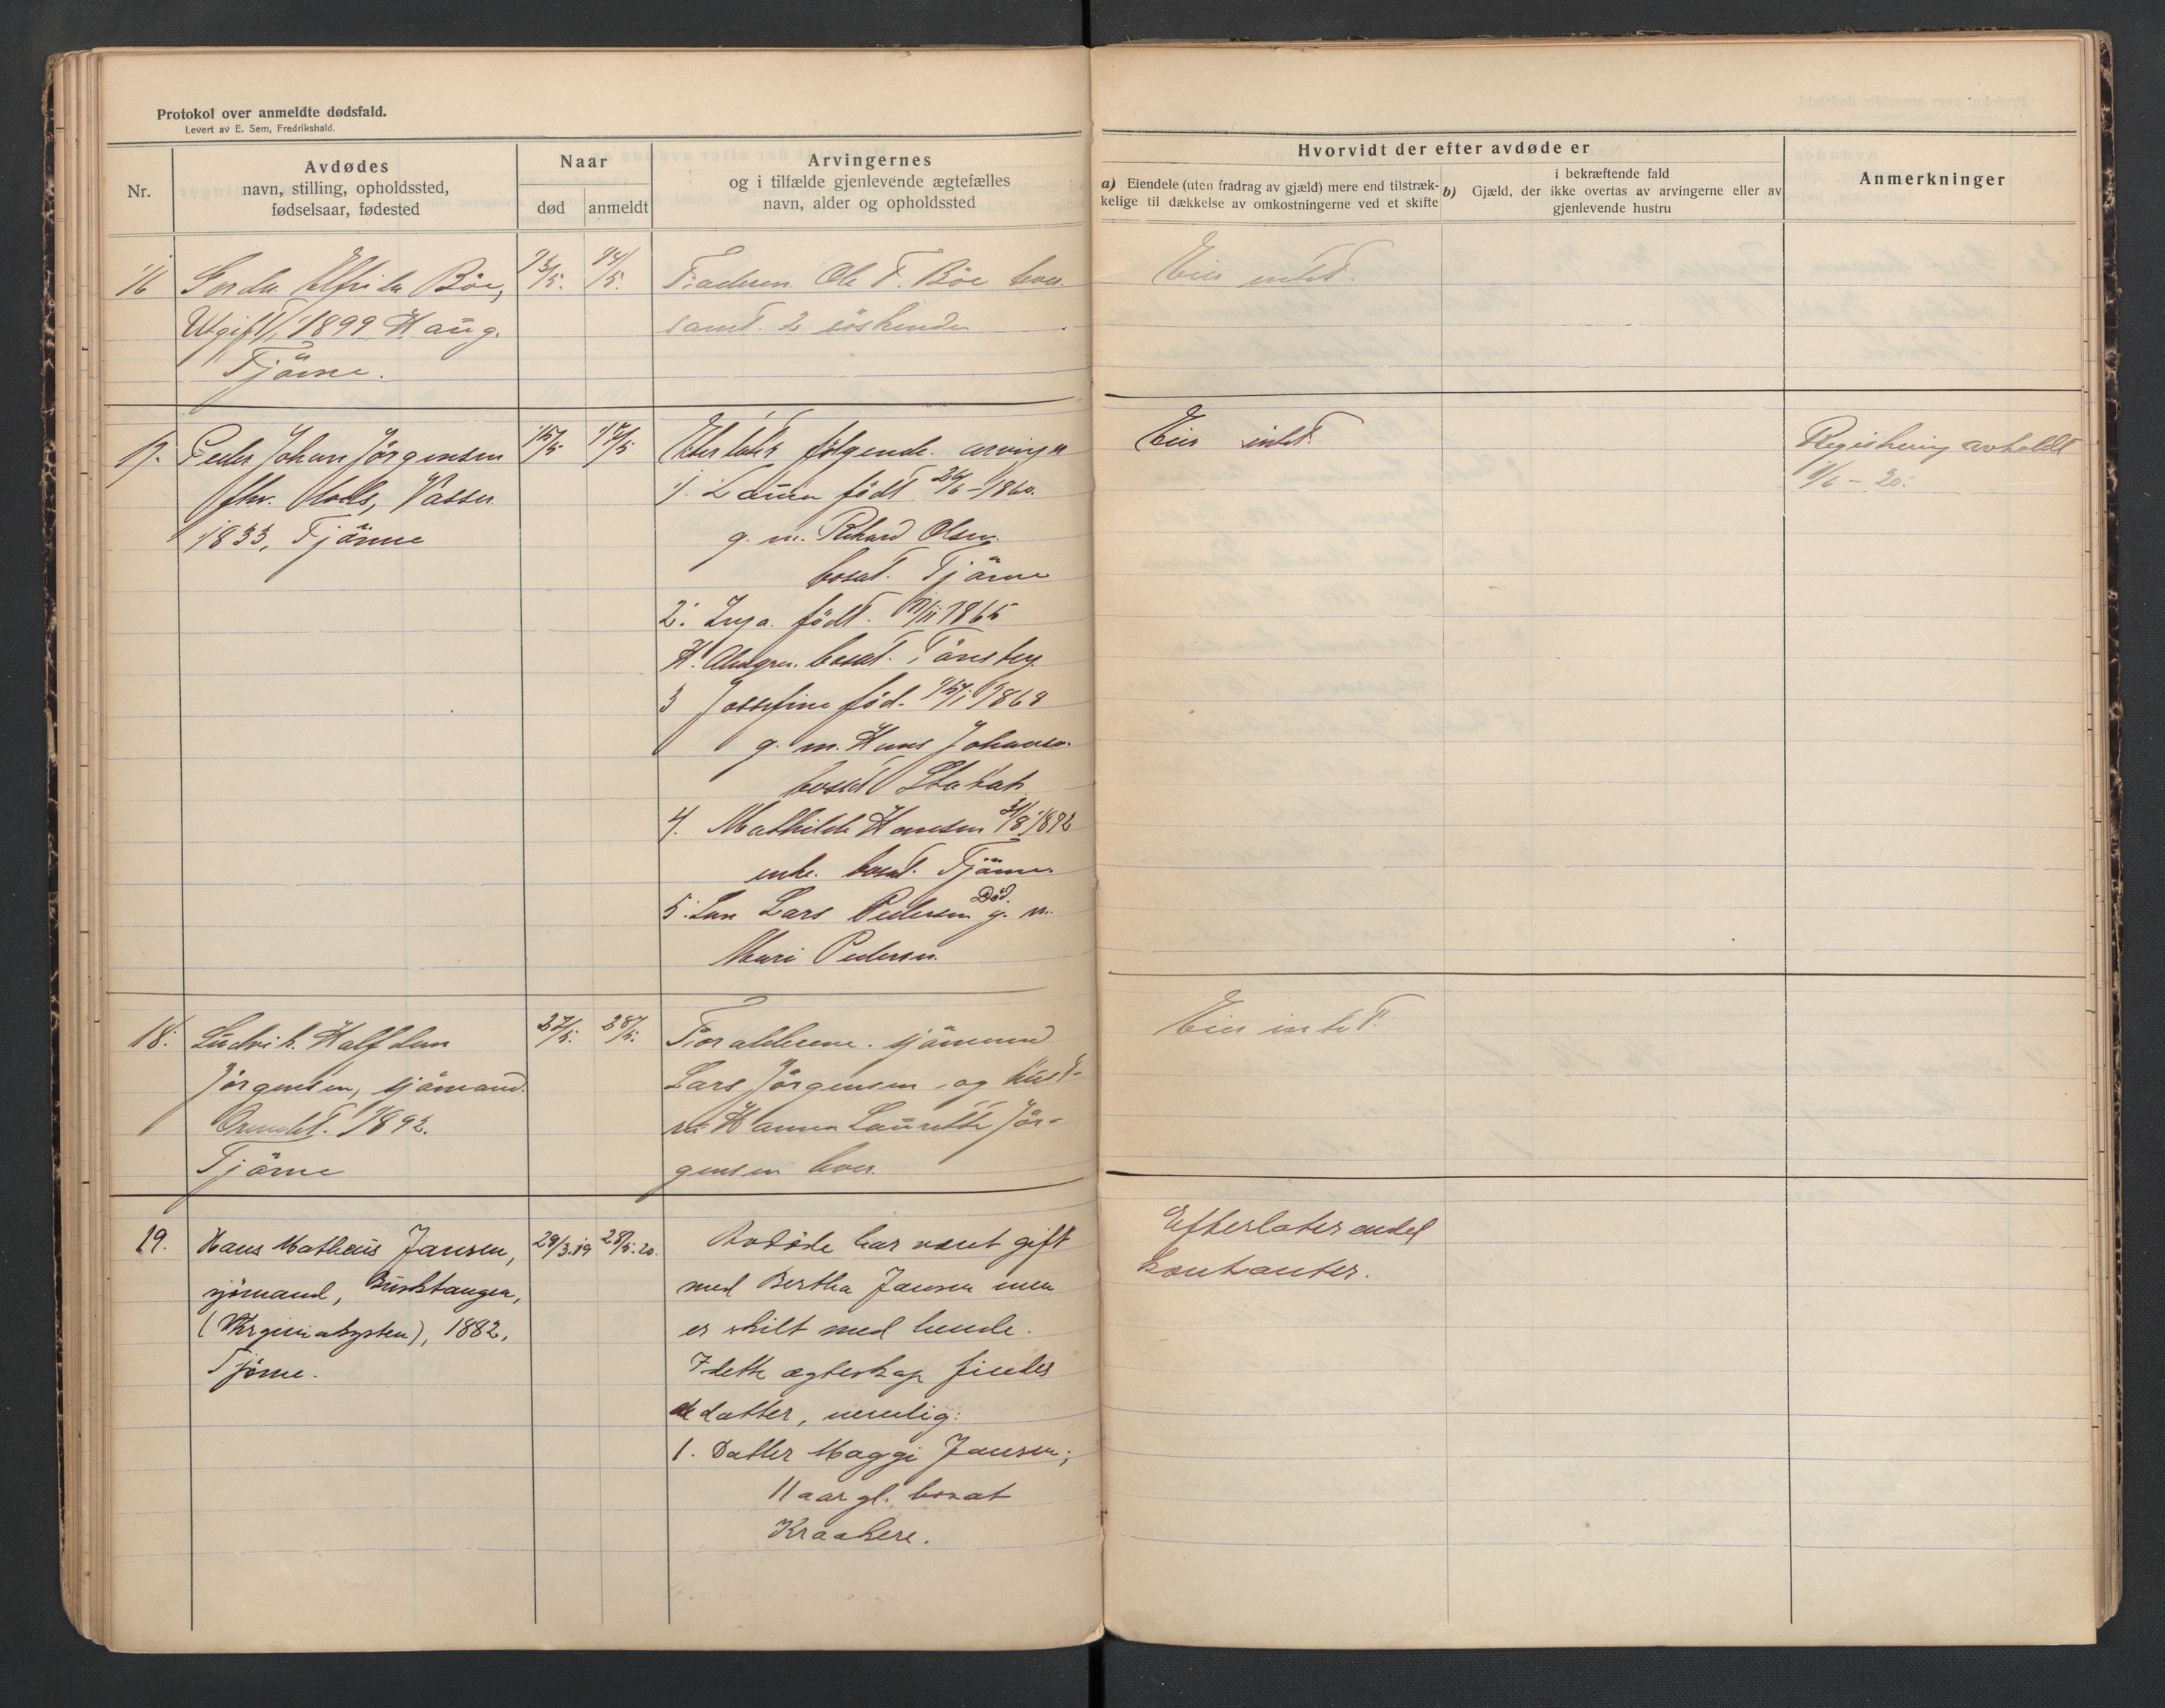 Protokol over anmeldte dødsfald.
Levert av E. Sem, Fredrikshald.
Nr.
Avdødes
navn, stilling, opholdssted,
fødselsaar, fødested
Naar
død
anmeldt
Arvingernes
og i tilfælde gjenlevende ægtefælles
navn, alder og opholdssted
Hvorvidt der efter avdøde er
a) Eiendele (uten fradrag av gjæld) mere end tilstræk-
kelige til dækkelse av omkostningerne ved et skifte
i bekræftende fald
b) Gjæld, der ikke overtas av arvingerne eller av
gjenlevende hustru
Anmerkninger
16 Gerda Elfrida Böe,
Ugift, 1899 Haug.
Tjöme.
Faderen Ole F. Böe
samt. 2 söskende
Eier intet.
17. Peder Johan Jörgensen
fhv. Lods, Vasser
1833, Tjöme
15/5 17/5
Efterlater følgende arvinger
1. födt 26/6-1860.
g. m. Rikard Olsen
bosat. Tjöme
2. Inga. födt. 11/11 1865
bosat. Tönsberg
3 Josefine föd. 15/1 1868
g. m. Hans Johansen
bosat
4. Mathilde Hansen 31/8 1892
enke. bosat. Tjöme.
5. Lars Pedersen Död. g. m.
Mari Pedersen.
Eier intet.
Registrering avholdt
11/6 - 20.
18. Ludvik Halfdan
Jörgensen, sjömand.
1892.
Tjöme
27/5. 28/5.
Foraldrene. sjömand
Lars Jörgensen og hust-
ru Hanna Laurette Jör-
gensen
Eier intet.
19. Hans Mathæus Jansen,
sjömand, Buskstangen,
1882,
Tjöme.
29/3.19 28/5.20.
Avdöde har været gift
med Bertha Jansen men
er skilt med hende.
I dette ægteskap findes
datter, nemlig:
1. Datter Maggi Jansen;
11 aar gl. bosat
Kraakere.
Efterlater endel
kontanter.